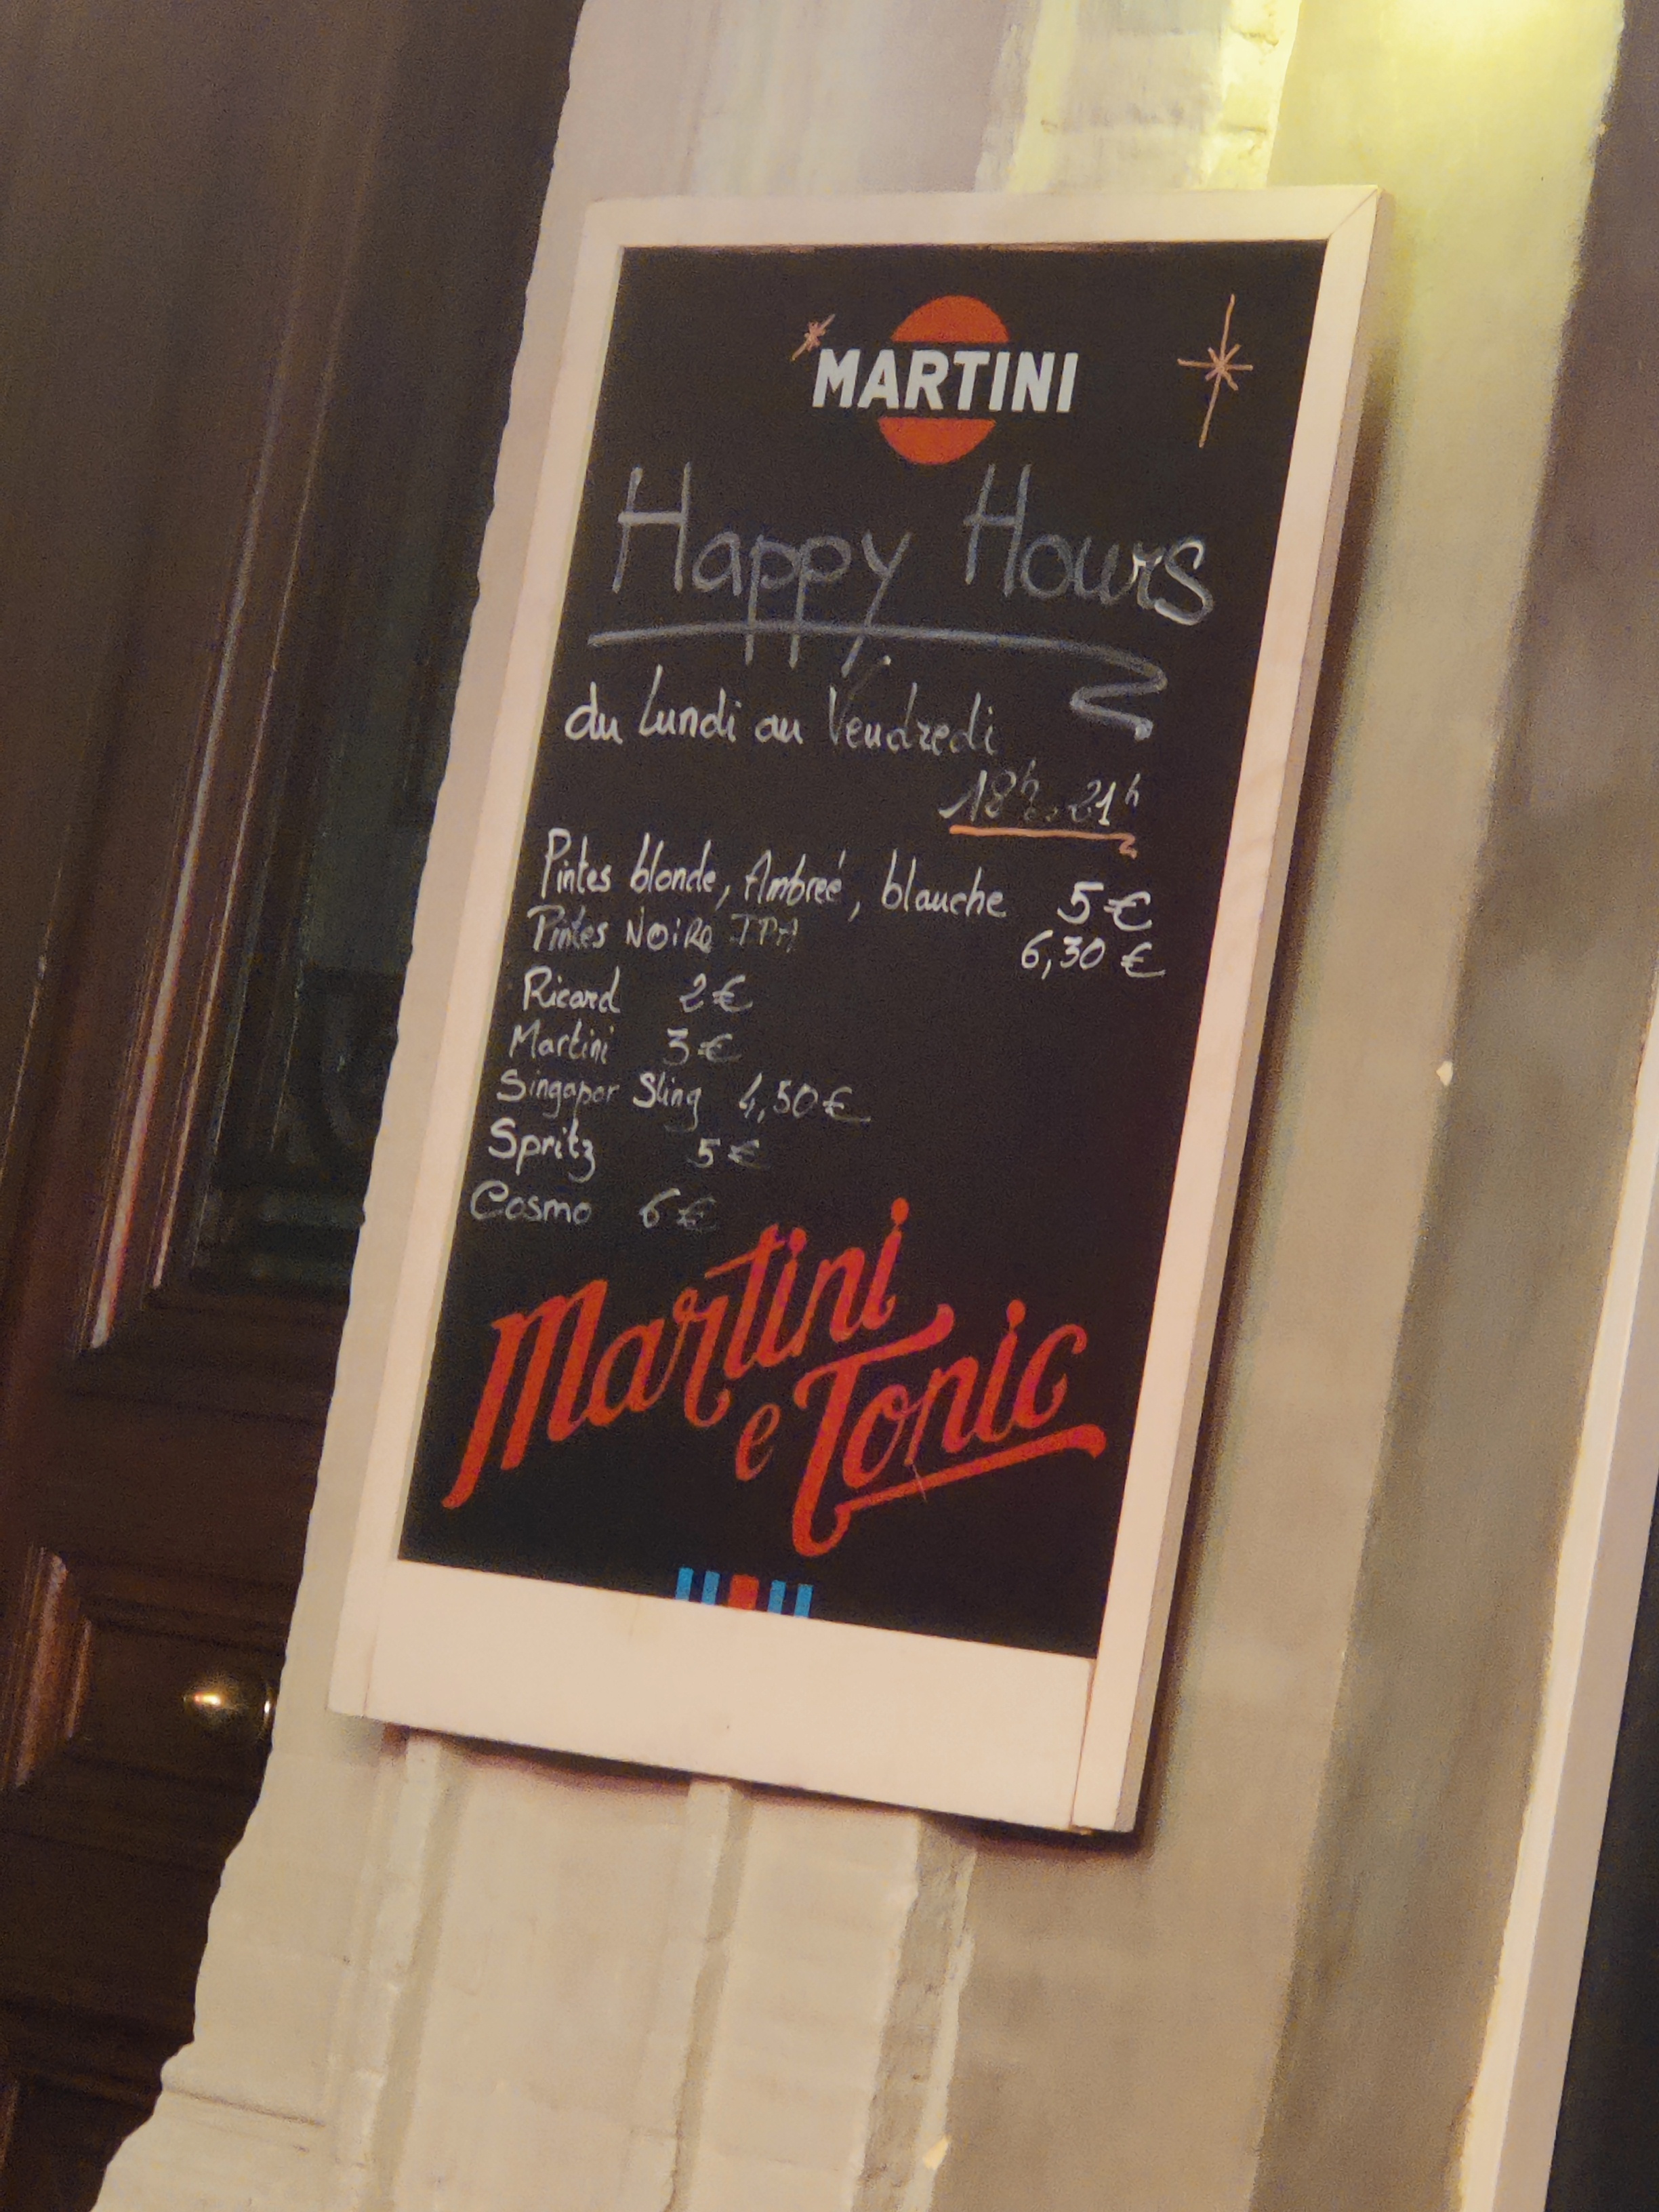 MARTINI
Happy Hours
du Lundi au Vendredi
18h 21h
Pintes blonde, Ambreé, blanche 5€
Pintes NOiRe IPA 6,30 €
Ricard 2€
Martini 3€
Singapor Sling 4,50€
Spritz 5€
Cosmo 6€
Martini
e Tonic